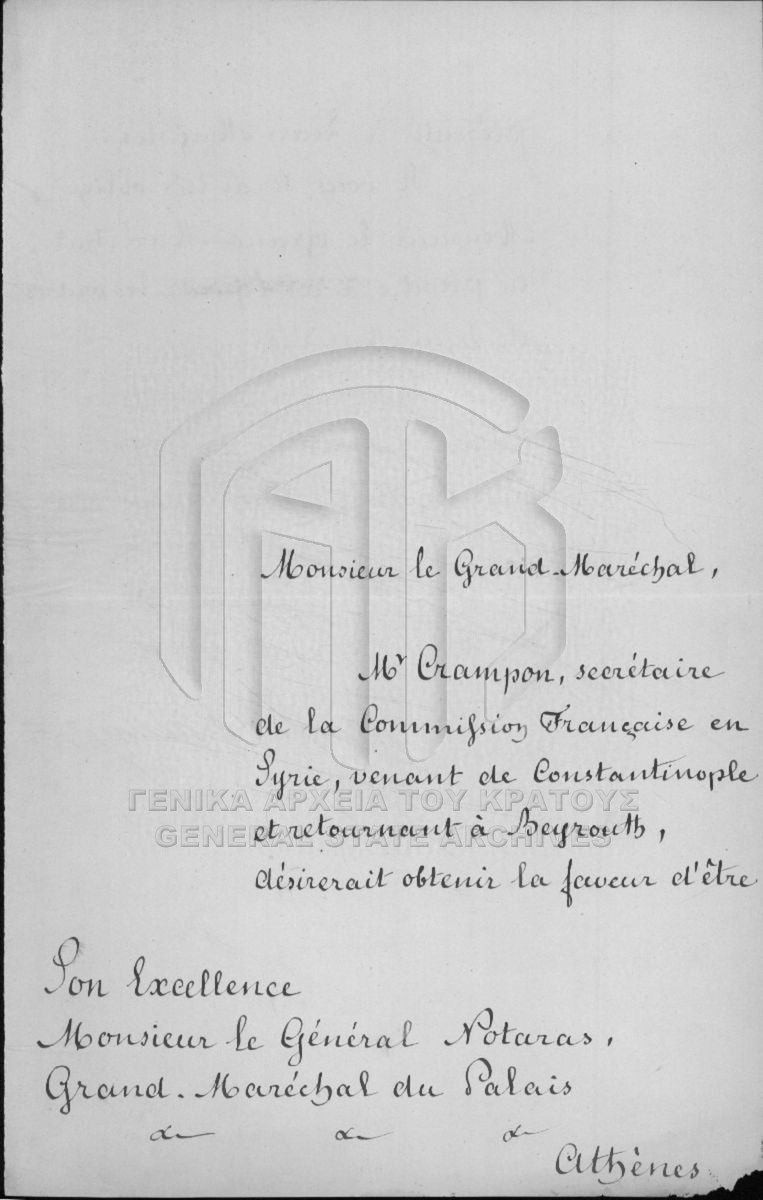 Monsieur le Grand-Maréchal,
Mr Crampon, secrétaire
de la Commission Française en
Syrie, venant de Constantinople
ΓΕΝΙΚΑ ΑΡΧΕΙΑ ΤΟΥ ΚΡΑΤΟΥΣ
GENERAL STATE ARCHIVES
et retournant à Beyrouth,
désirerait obtenir la faveur d'être
Son Excellence
Monsieur le Général Notaras,
Grand-Maréchal du Palais
Athènes